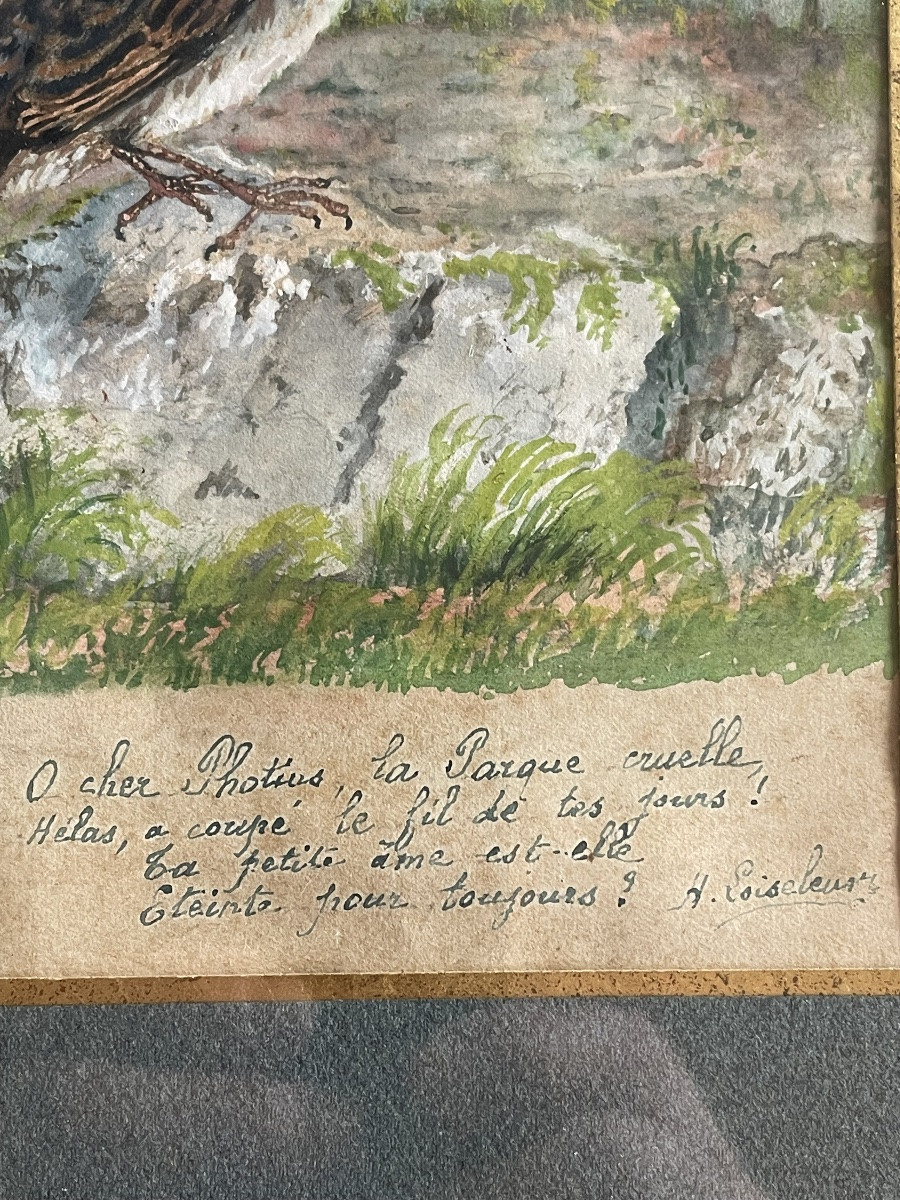 O cher Photius, la Parque cruelle,
Hélas, a coupé le fil de tes jours !
Ta petite âme est-elle
Eteinte pour toujours ? H. Loiseleur